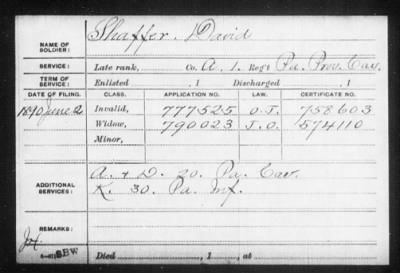 NAME OF SOLDIER: Shaffer, David
SERVICE: Late rank, Co. A, 1. Reg't Pa. Prov. Cav.
TERM OF SERVICE: Enlisted , 1 Discharged , 1
DATE OF FILING. CLASS. APPLICATION NO. LAW. CERTIFICATE NO.
1890 June 2 Invalid, 777525 O.J. 758603
Widow, 790023 J.O. 574110
Minor,
ADDITIONAL SERVICES: A. + D. 20. Pa. Cav.
K. 30. Pa. Inf.
REMARKS:
BBW
Died , 1 , at